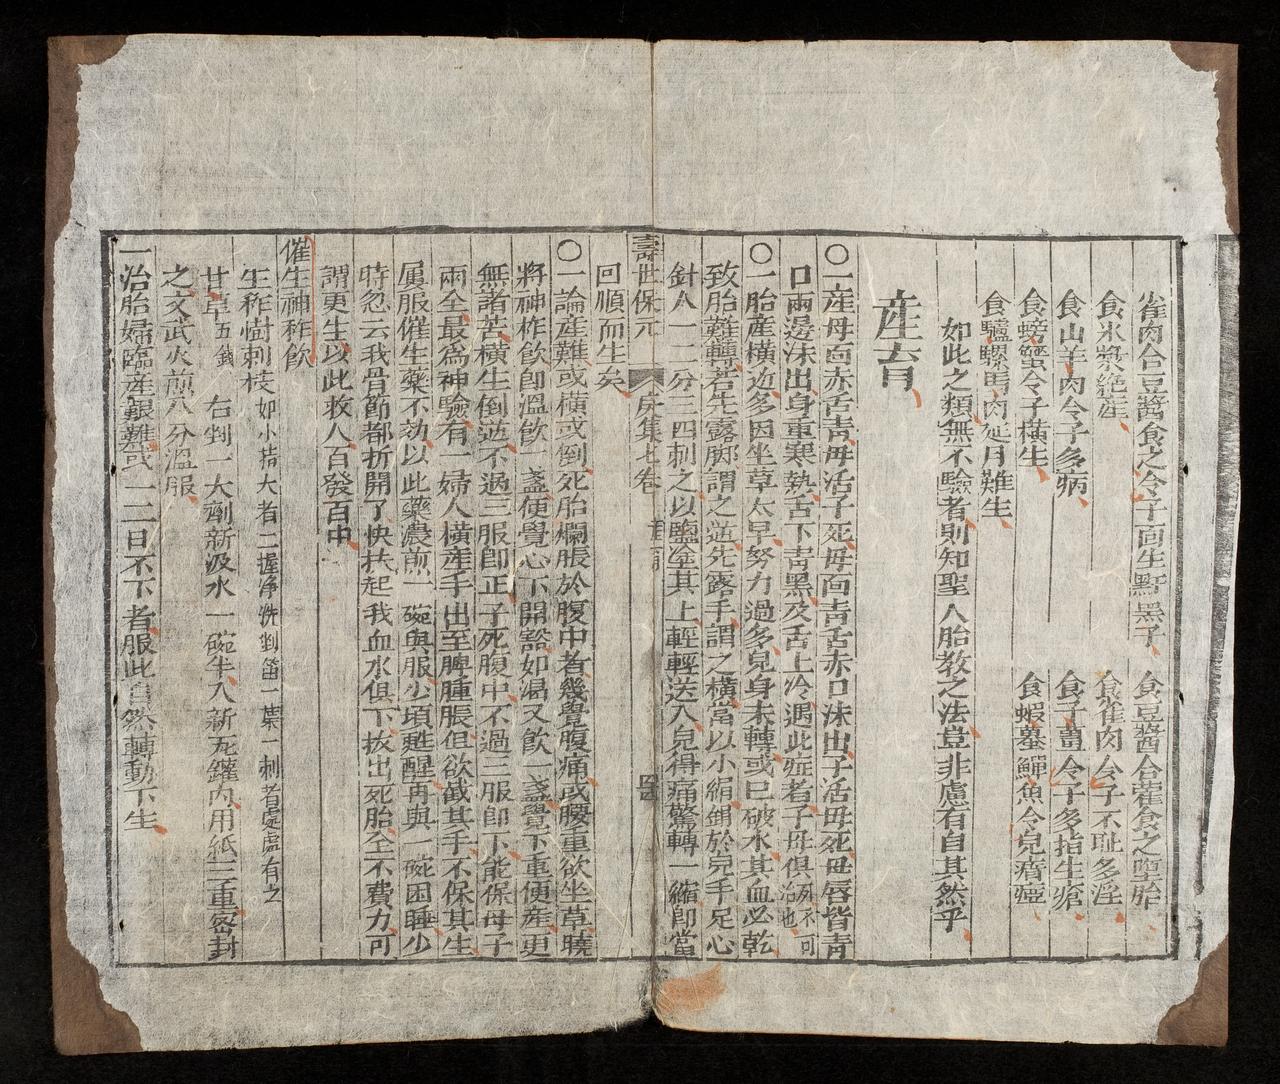 雀肉合豆醬食之令子面生䵟黑子　食豆醬合藿食之墮胎
食氷漿絕産　食雀肉令子不耻多淫
食山羊肉令子多病　食子薑令子多指生瘡
食螃蠏令子橫生　食蝦蟇鱓魚令兒瘖瘂
食驢騾馬肉延月難生
如此之類無不驗者則知聖人胎教之法豈非慮有自其然乎
産育
○一産母面赤舌靑母活子死母面靑舌赤口沫出子活母死母唇皆靑
口兩邊沫出身重寒熱舌下靑黑及舌上冷遇此症者子母俱死不可治也
○一胎産橫逆多因坐草太早努力過多兒身未轉或已破水其血必乾
致胎難轉若先露脚謂之逆先露手謂之橫當以小絹針於兒手足心
針入一二分三四刺之以鹽塗其上輕輕送入兒得痛驚轉一縮卽當
回順而生矣
壽世保元　庚集七卷　産育　四
○一論産難或橫或倒死胎爛脹於腹中者幾覺腹痛或腰重欲坐草曉
將神柞飮卽溫飮一盞便覺心下開豁如渴又飮一盞覺下重便産更
無諸苦橫生倒逆不過三服卽正子死腹中不過三服卽下能保母子
兩全最爲神驗有一婦人橫産手出至脾腫脹但欲截其手不保其生
屢服催生藥不効以此藥濃煎一碗與服少頃甦醒再與一碗困睡少
時忽云我骨節都折開了快扶起我血水俱下拔出死胎全不費力可
謂更生以此救人百發百中
催生神柞飮
生柞樹刺枝如小指大者二握净洗剉笛一葉一刺者處處有之
甘草五錢　右剉一大劑新汲水一碗半入新瓦鑵內用紙三重密封
之文武火煎八分溫服
一治胎婦臨産艱難或一二日不下者服此自然轉動下生